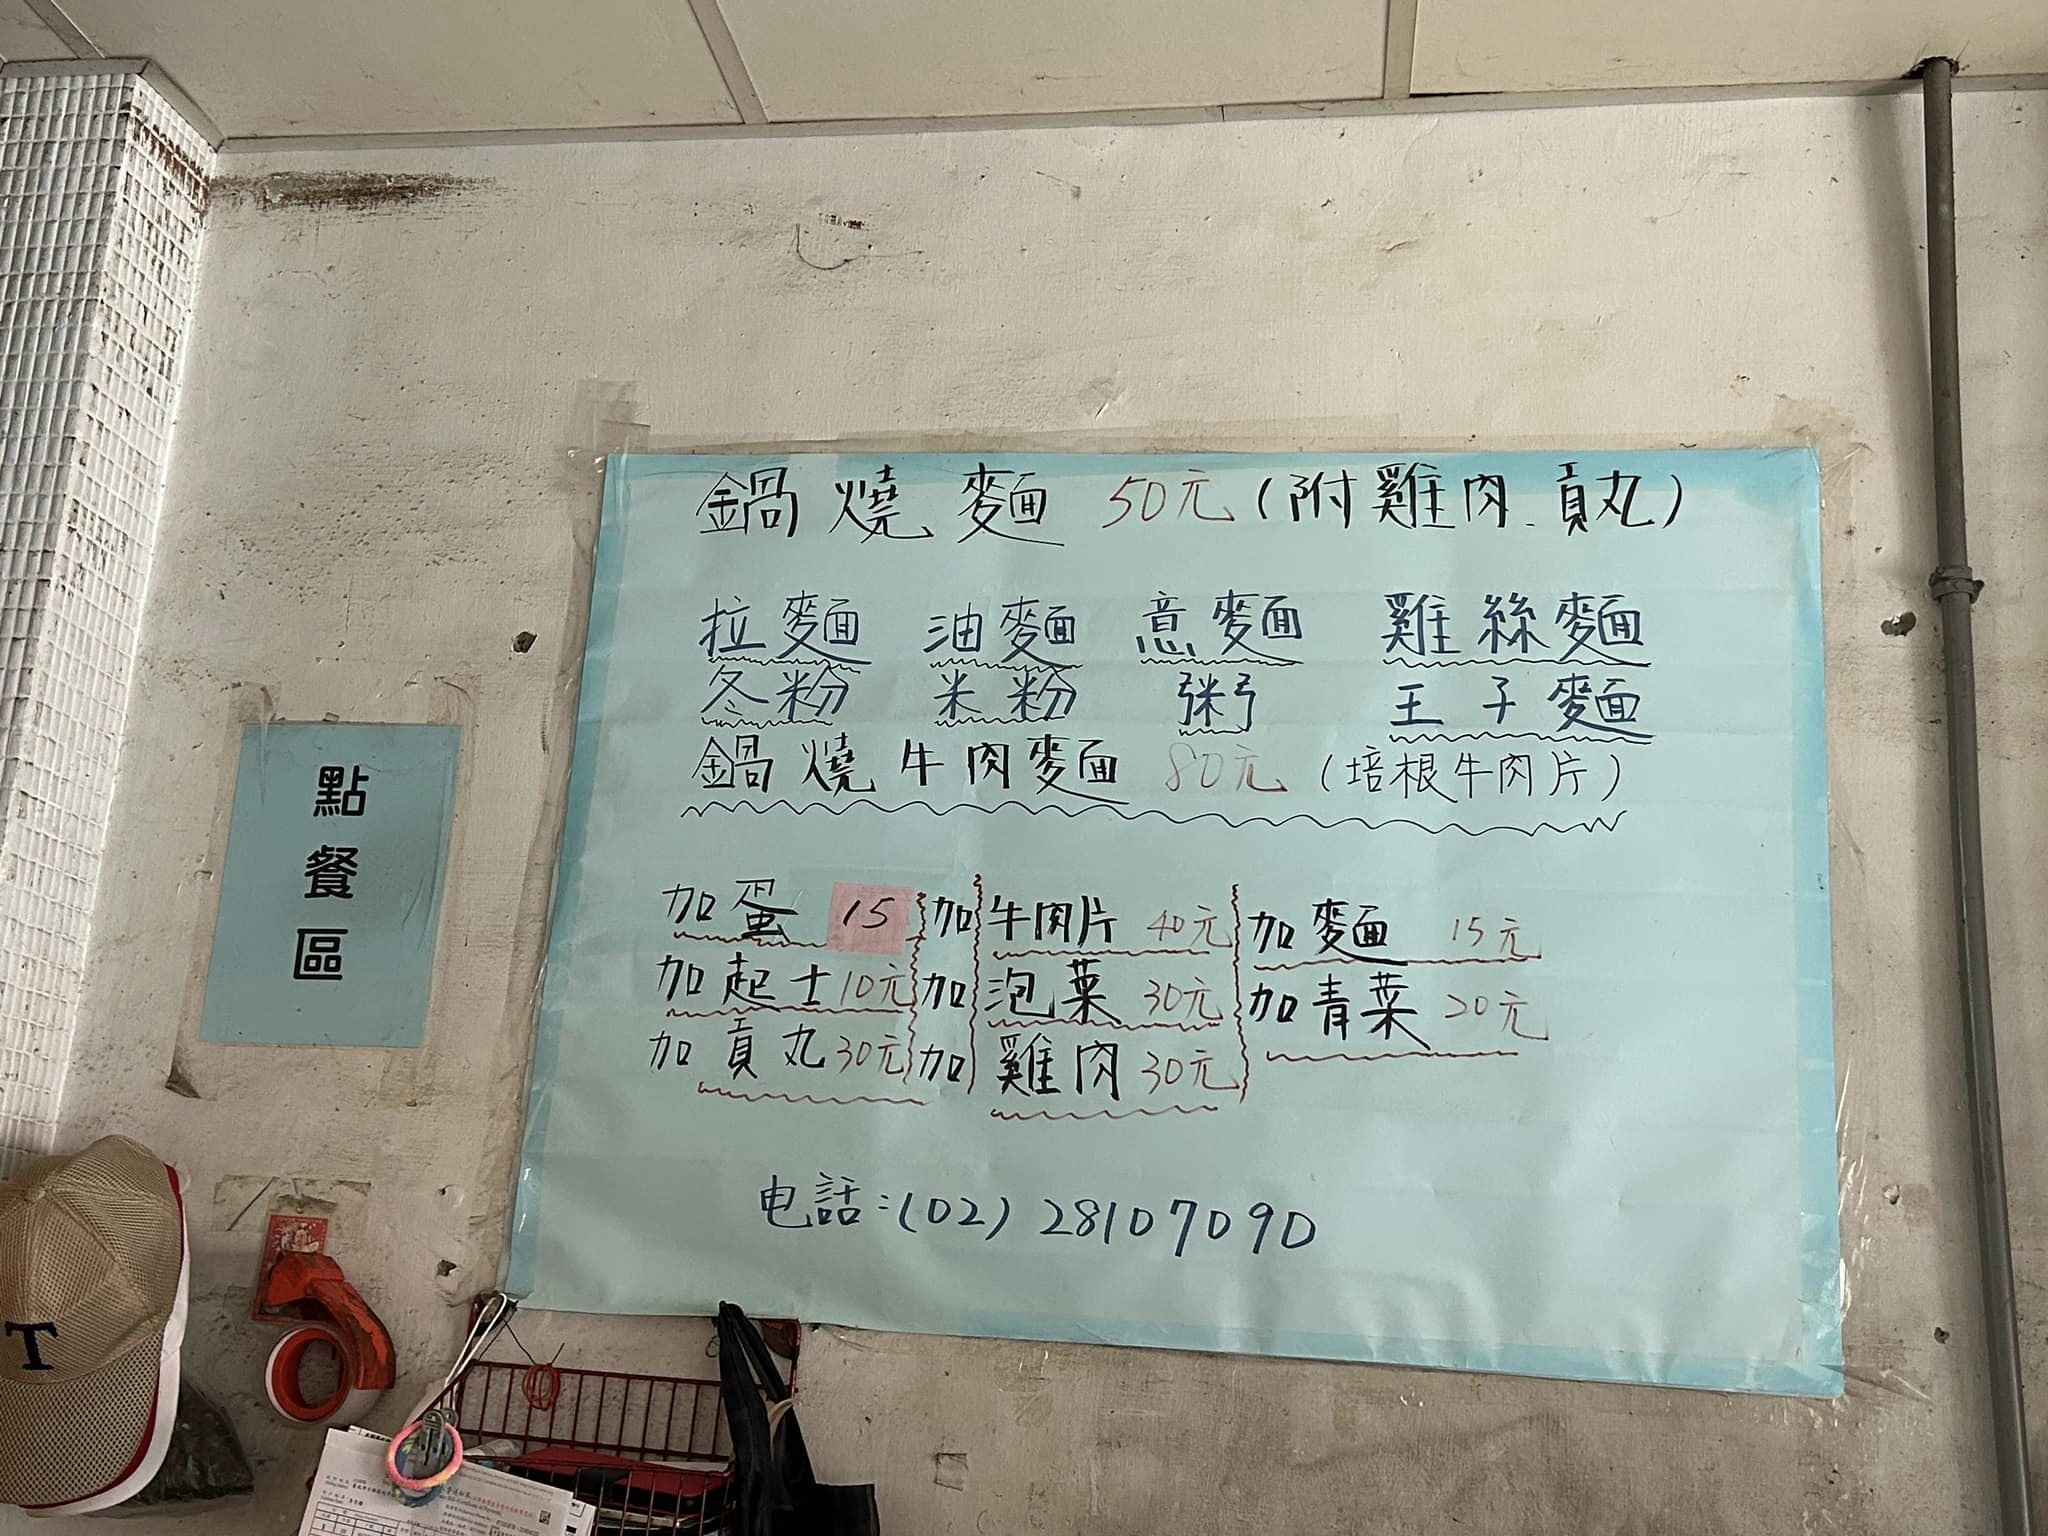 鍋燒麵 50元(附雞肉、貢丸)
拉麵 油麵 意麵 雞絲麵
冬粉 米粉 粥 王子麵
鍋燒牛肉麵 80元(培根牛肉片)
加蛋 15 加牛肉片 40元 加麵 15元
加起士10元 加泡菜 30元 加青菜 20元
加貢丸30元 加雞肉 30元
电話:(02) 28107090
點
餐
區
T